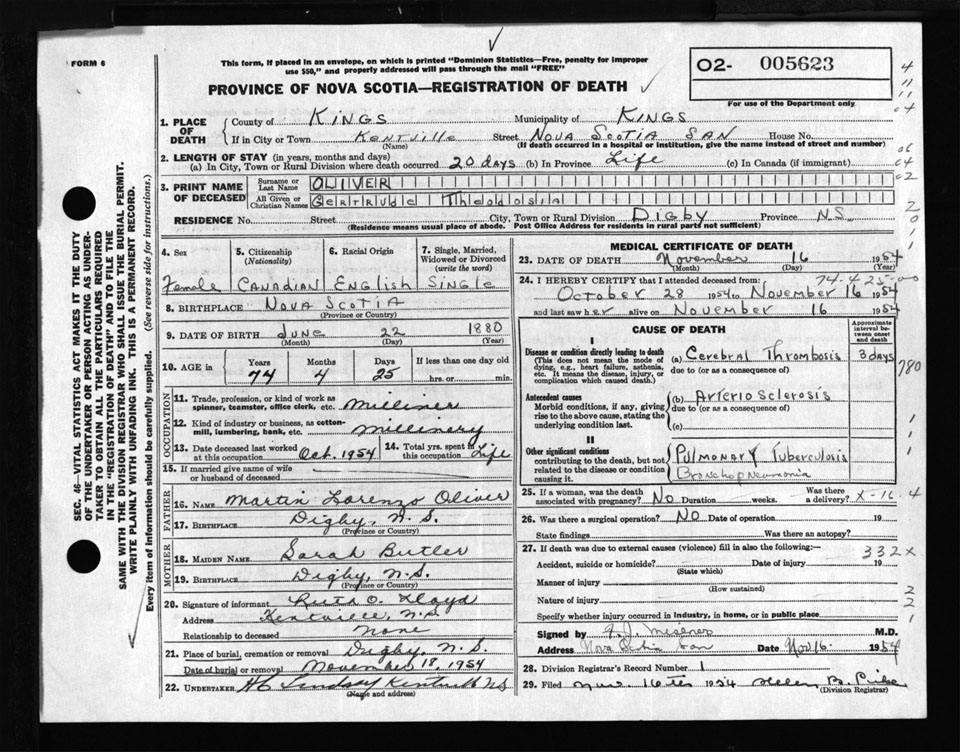 FORM 6
This form, if placed in an envelope, on which is printed "Dominion Statistics—Free, penalty for improper
use $50," and properly addressed will pass through the mail "FREE"
PROVINCE OF NOVA SCOTIA—REGISTRATION OF DEATH
02- 005623
For use of the Department only
SEC. 46—VITAL STATISTICS ACT MAKES IT THE DUTY
OF THE UNDERTAKER OR PERSON ACTING AS UNDER-
TAKER TO OBTAIN ALL THE PARTICULARS REQUIRED
IN THE "REGISTRATION OF DEATH" AND TO FILE THE
SAME WITH THE DIVISION REGISTRAR WHO SHALL ISSUE THE BURIAL PERMIT.
WRITE PLAINLY WITH UNFADING INK. THIS IS A PERMANENT RECORD.
Every item of information should be carefully supplied. (See reverse side for instructions.)
1. PLACE OF DEATH County of KINGS Municipality of KINGS
If in City or Town Kentville Street NOVA SCOTIA SAN House No.
(Name) (If death occurred in a hospital or institution, give the name instead of street and number)
2. LENGTH OF STAY (in years, months and days)
(a) In City, Town or Rural Division where death occurred 20 days (b) In Province Life (c) In Canada (if immigrant)
3. PRINT NAME OF DECEASED Surname or Last Name OLIVER
All Given or Christian Names Gertrude Theodosia
RESIDENCE No. Street City, Town or Rural Division DIGBY Province N.S.
(Residence means usual place of abode. Post Office Address for residents in rural parts not sufficient)
4. Sex 5. Citizenship (Nationality) 6. Racial Origin 7. Single, Married, Widowed or Divorced (write the word)
Female CANADIAN English Single
8. BIRTHPLACE NOVA SCOTIA
(Province or Country)
9. DATE OF BIRTH June 22 1880
(Month) (Day) (Year)
10. AGE in Years Months Days If less than one day old
74 4 25 hrs. or min.
OCCUPATION
11. Trade, profession, or kind of work as
spinner, teamster, office clerk, etc. Milliner
12. Kind of industry or business, as cotton-
mill, lumbering, bank, etc. millinery
13. Date deceased last worked at this occupation Oct. 1954 14. Total yrs. spent in this occupation Life
15. If married give name of wife
or husband of deceased
FATHER
16. NAME Martin Lorenzo Oliver
17. BIRTHPLACE Digby, N.S.
(Province or Country)
MOTHER
18. MAIDEN NAME Sarah Butler
19. BIRTHPLACE Digby, N.S.
(Province or Country)
20. Signature of informant Ruth O. Lloyd
Address Kentville, N.S.
Relationship to deceased None
21. Place of burial, cremation or removal Digby, N.S.
Date of burial or removal November 18, 1954
22. UNDERTAKER Lindsay Kentville N.S
(Name and address)
MEDICAL CERTIFICATE OF DEATH
23. DATE OF DEATH November 16 1954
(Month) (Day) (Year)
24. I HEREBY CERTIFY that I attended deceased from:
October 28 1954 to November 16 1954
and last saw her alive on November 16 1954
CAUSE OF DEATH
Approximate interval between onset and death
I
Disease or condition directly leading to death (a) Cerebral Thrombosis 3 days
(This does not mean the mode of dying, e.g., heart failure, asthenia, etc. It means the disease, injury, or complication which caused death.) due to (or as a consequence of)
Antecedent causes (b) Arterio Sclerosis
Morbid conditions, if any, giving rise to the above cause, stating the underlying condition last. due to (or as a consequence of)
(c)
II
Other significant conditions Pulmonary Tuberculosis
contributing to the death, but not related to the disease or condition causing it. Bronchopneumonia
25. If a woman, was the death associated with pregnancy? No Duration weeks. Was there a delivery? X-16.4
26. Was there a surgical operation? No Date of operation 19
State findings Was there an autopsy?
27. If death was due to external causes (violence) fill in also the following:— 332X
Accident, suicide or homicide? Date of injury 19
(State which)
Manner of injury
(How sustained)
Nature of injury
Specify whether injury occurred in industry, in home, or in public place
Signed by M.D.
Address Nova Scotia San Date Nov 16 1954
28. Division Registrar's Record Number 1
29. Filed Nov. 16th 1954 Helen B.
(Division Registrar)